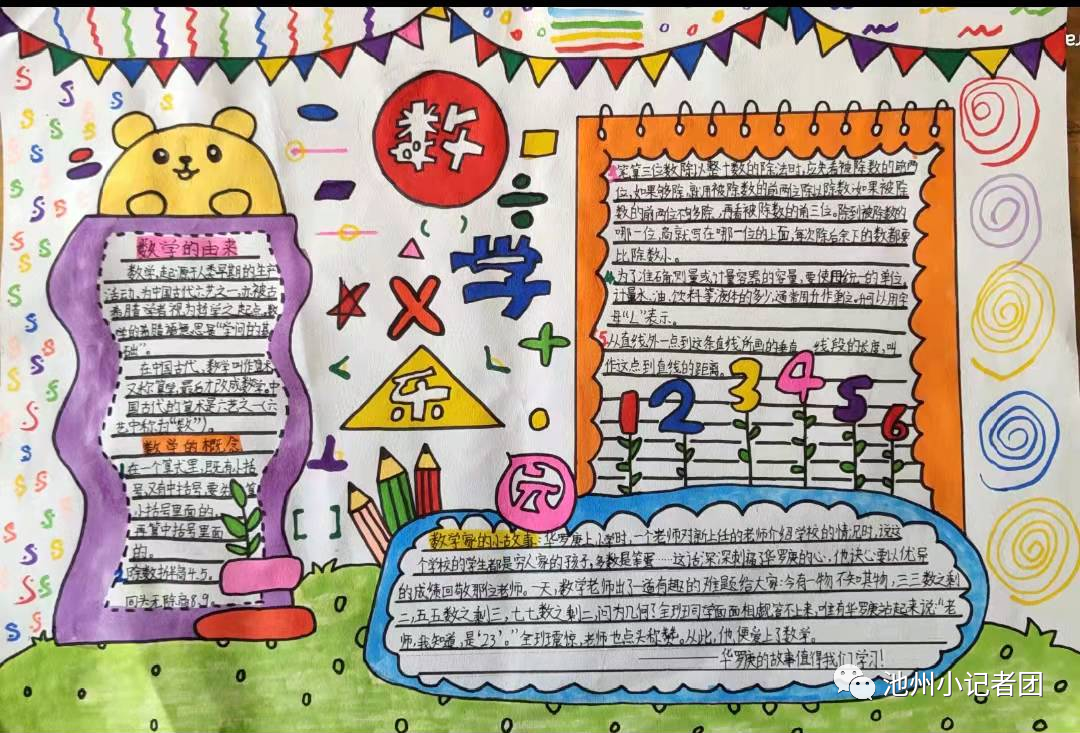 数
学
乐
园
数学的由来
数学,起源于人类早期的生产
活动,为中国古代六艺之一,亦被古
希腊学者视为哲学之起点,数
学的希腊语意思是“学问的基
础”。
在中国古代,数学叫作算术,
又称算学,最后才改成数学。中
国古代的算术是六艺之一(六
艺中称为“数”)。
数学的概念
1在一个算式里,既有小括
号,又有中括号,要先算
小括号里面的,
再算中括号里面
的。
2除数折半商4.5,
同头无除商8.9
笔算三位数除以整十数的除法时,应先看被除数的前两
位,如果够除,就用被除数的前两位除以除数;如果被除
数的前两位不够除,再看被除数的前三位。除到被除数的
哪一位,商就写在哪一位的上面,每次除后余下的数都要
比除数小。
4为了准确测量或计量容器的容量,要使用统一的单位,
计量水、油、饮料等液体的多少,通常用升作单位,升可以用字
母“L”表示。
5从直线外一点到这条直线所画的垂直 线段的长度,叫
作这点到直线的距离。
1 2 3 4 5 6
数学家的小故事:华罗庚上小学时,一个老师对新上任的老师介绍学校的情况时,说这
个学校的学生都是穷人家的孩子,多数是笨蛋……这话深深刺痛了华罗庚的心,他决心要以优异
的成绩回敬那位老师。一天,数学老师出了一道有趣的难题给大家:今有一物不知其物,三三数之剩
三,五五数之剩三,七七数之剩二,问为几何?全班同学面面相觑答不上来,唯有华罗庚站起来说:“老
师,我知道,是‘23’。”全班震惊,老师也点头称赞。从此,他便爱上了数学。
———华罗庚的故事值得我们学习!
池州小记者团